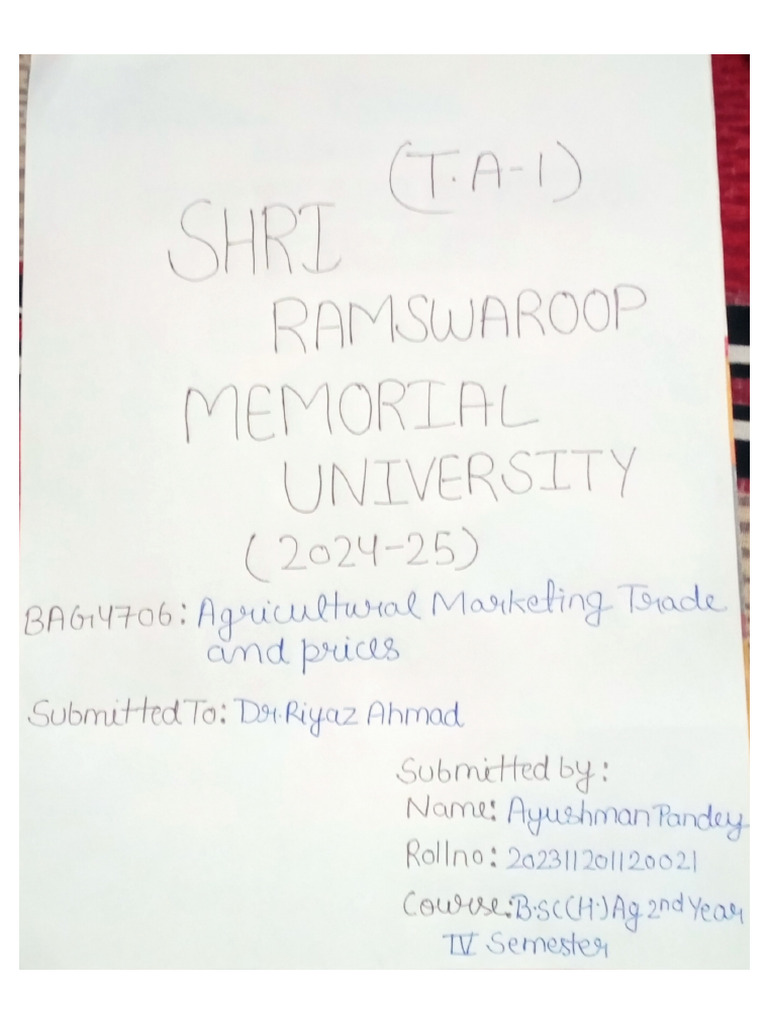 (T.A-1)
SHRI
RAMSWAROOP
MEMORIAL
UNIVERSITY
(2024-25)
BAG4706: Agricultural Marketing Trade
and prices
Submitted To: Dr. Riyaz Ahmad
Submitted by:
Name: Ayushman Pandey
Rollno: 202311201120021
Course: B.SC(H.) Ag 2nd Year
IV Semester